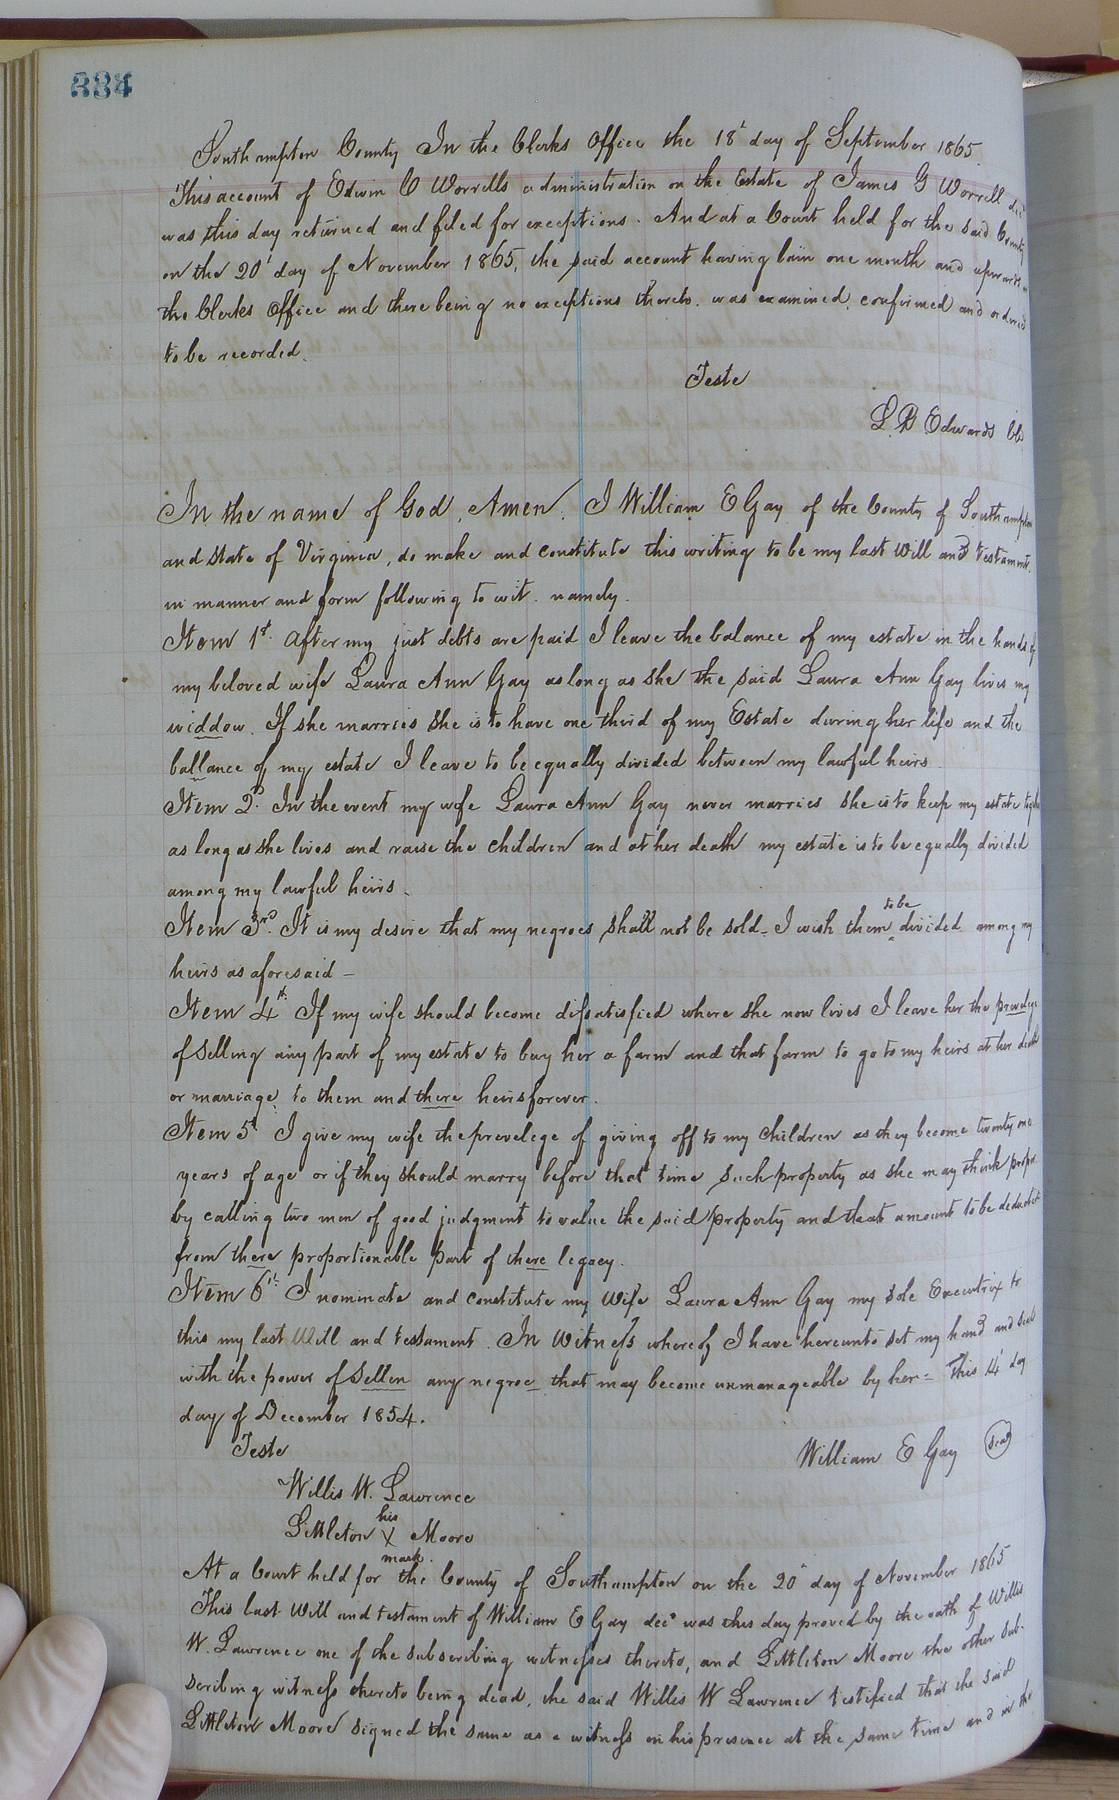 334
Southampton County In the Clerks Office the 18t day of September 1865.
This account of Edwin W Worrells administration on the Estate of James G Worrell decd
was this day returned and filed for exceptions. And at a Court held for the said County
on the 20t day of November 1865, the said account having lain one month and upwards in
the Clerks Office and there being no exceptions thereto. was examined, confirmed and ordered
to be recorded.
Teste
L R Edwards Clk
In the name of God, Amen. I William E Gay of the County of Southampton
and state of Virginia, do make and constitute this writing to be my last Will and testament.
in manner and form following to wit. namely.
Item 1st. After my just debts are paid I leave the balance of my estate in the hands of
my beloved wife Laura Ann Gay as long as she the said Laura Ann Gay lives my
widdow. If she marries she is to have one third of my Estate during her life and the
ballance of my estate I leave to be equally divided between my lawful heirs.
Item 2d. In the event my wife Laura Ann Gay never marries she is to keep my estate together
as long as she lives and raise the children and at her death my estate is to be equally divided
among my lawful heirs.
Item 3rd. It is my desire that my negroes shall not be sold - I wish them to be divided among my
heirs as aforesaid -
Item 4th. If my wife should become dissatisfied where she now lives I leave her the prevelege
of selling any part of my estate to buy her a farm and that farm to go to my heirs at her death
or marriage, to them and there heirs forever.
Item 5t I give my wife the prevelege of giving off to my children as they become twenty one
years of age or if they should marry before that time such property as she may think proper
by calling two men of good judgment to value the said property and that amount to be deducted
from there proportionable part of there legacy.
Item 6th. I nominate and constitute my wife Laura Ann Gay my sole Executrix to
this my last Will and testament. In Witness whereof I have hereunto set my hand and seal
with the power of sellen any negroe that may become unmanageable by her = This 14 day
day of December 1854.
Teste
William E Gay (Seal)
Willis W. Lawrence
Littleton his X mark. Moore
At a Court held for the County of Southampton on the 20t day of November 1865
This last Will and testament of William E Gay decd was this day proved by the oath of Willis
W. Lawrence one of the subscribing witnesses thereto, and Littleton Moore the other sub-
scribing witness thereto being dead, the said Willis W Lawrence testified that the said
Littleton Moore signed the same as a witness in his presence at the same time and in the